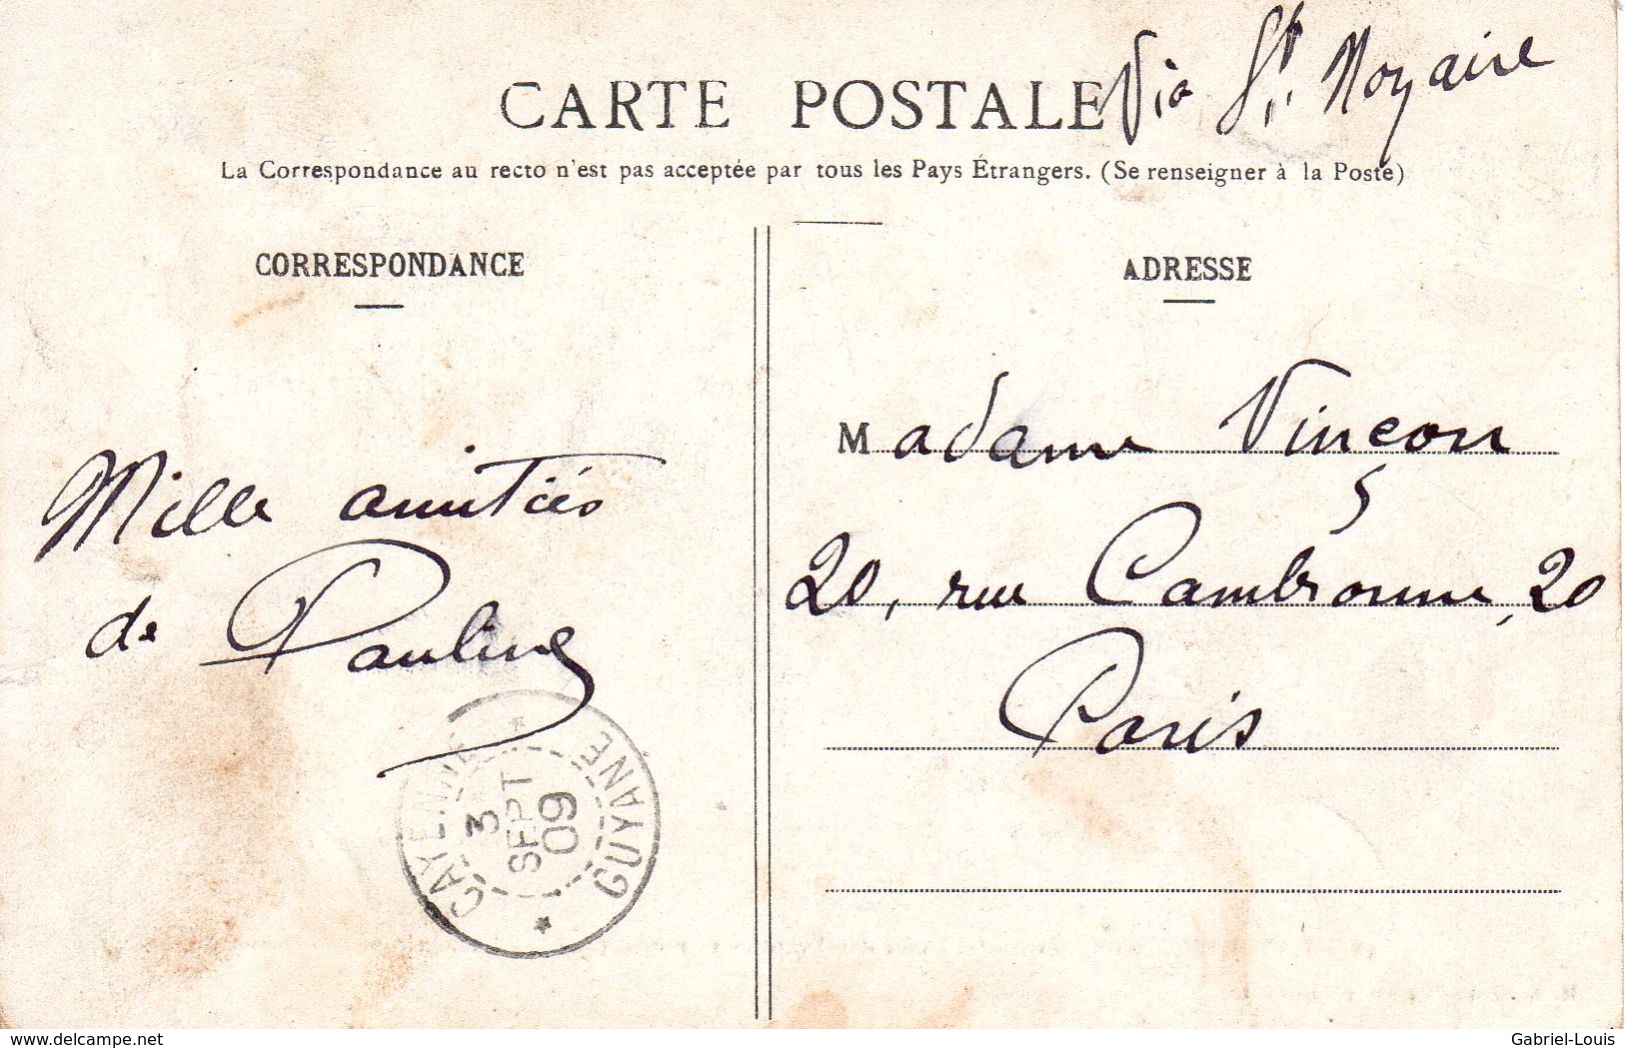 Via St. Nozaire
CARTE POSTALE
La Correspondance au recto n'est pas acceptée par tous les Pays Étrangers. (Se renseigner à la Poste)
CORRESPONDANCE
ADRESSE
Mille amitiés
de Pauline
Madame Vinçon
20, rue Cambronne, 20
Paris
CAYENNE
3
SEPT
09
GUYANE
delcampe.net
Gabriel-Louis